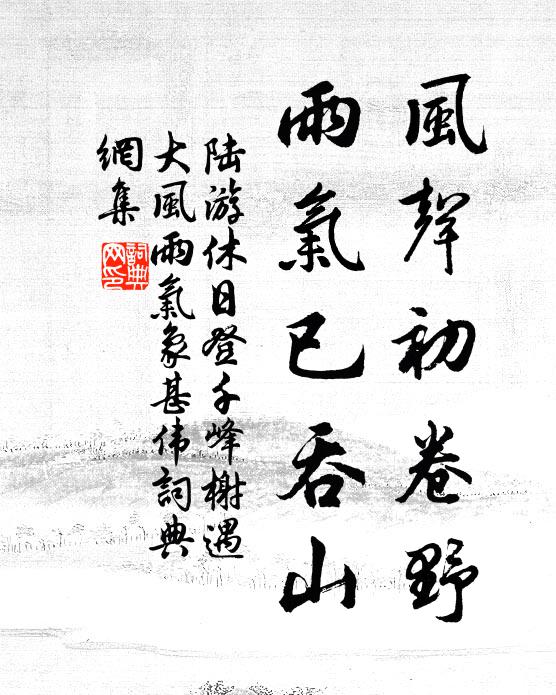 風聲初卷野
雨氣已吞山
陆游休日登千峰榭遇
大風雨氣象甚伟詞典
網集
詞典
网印